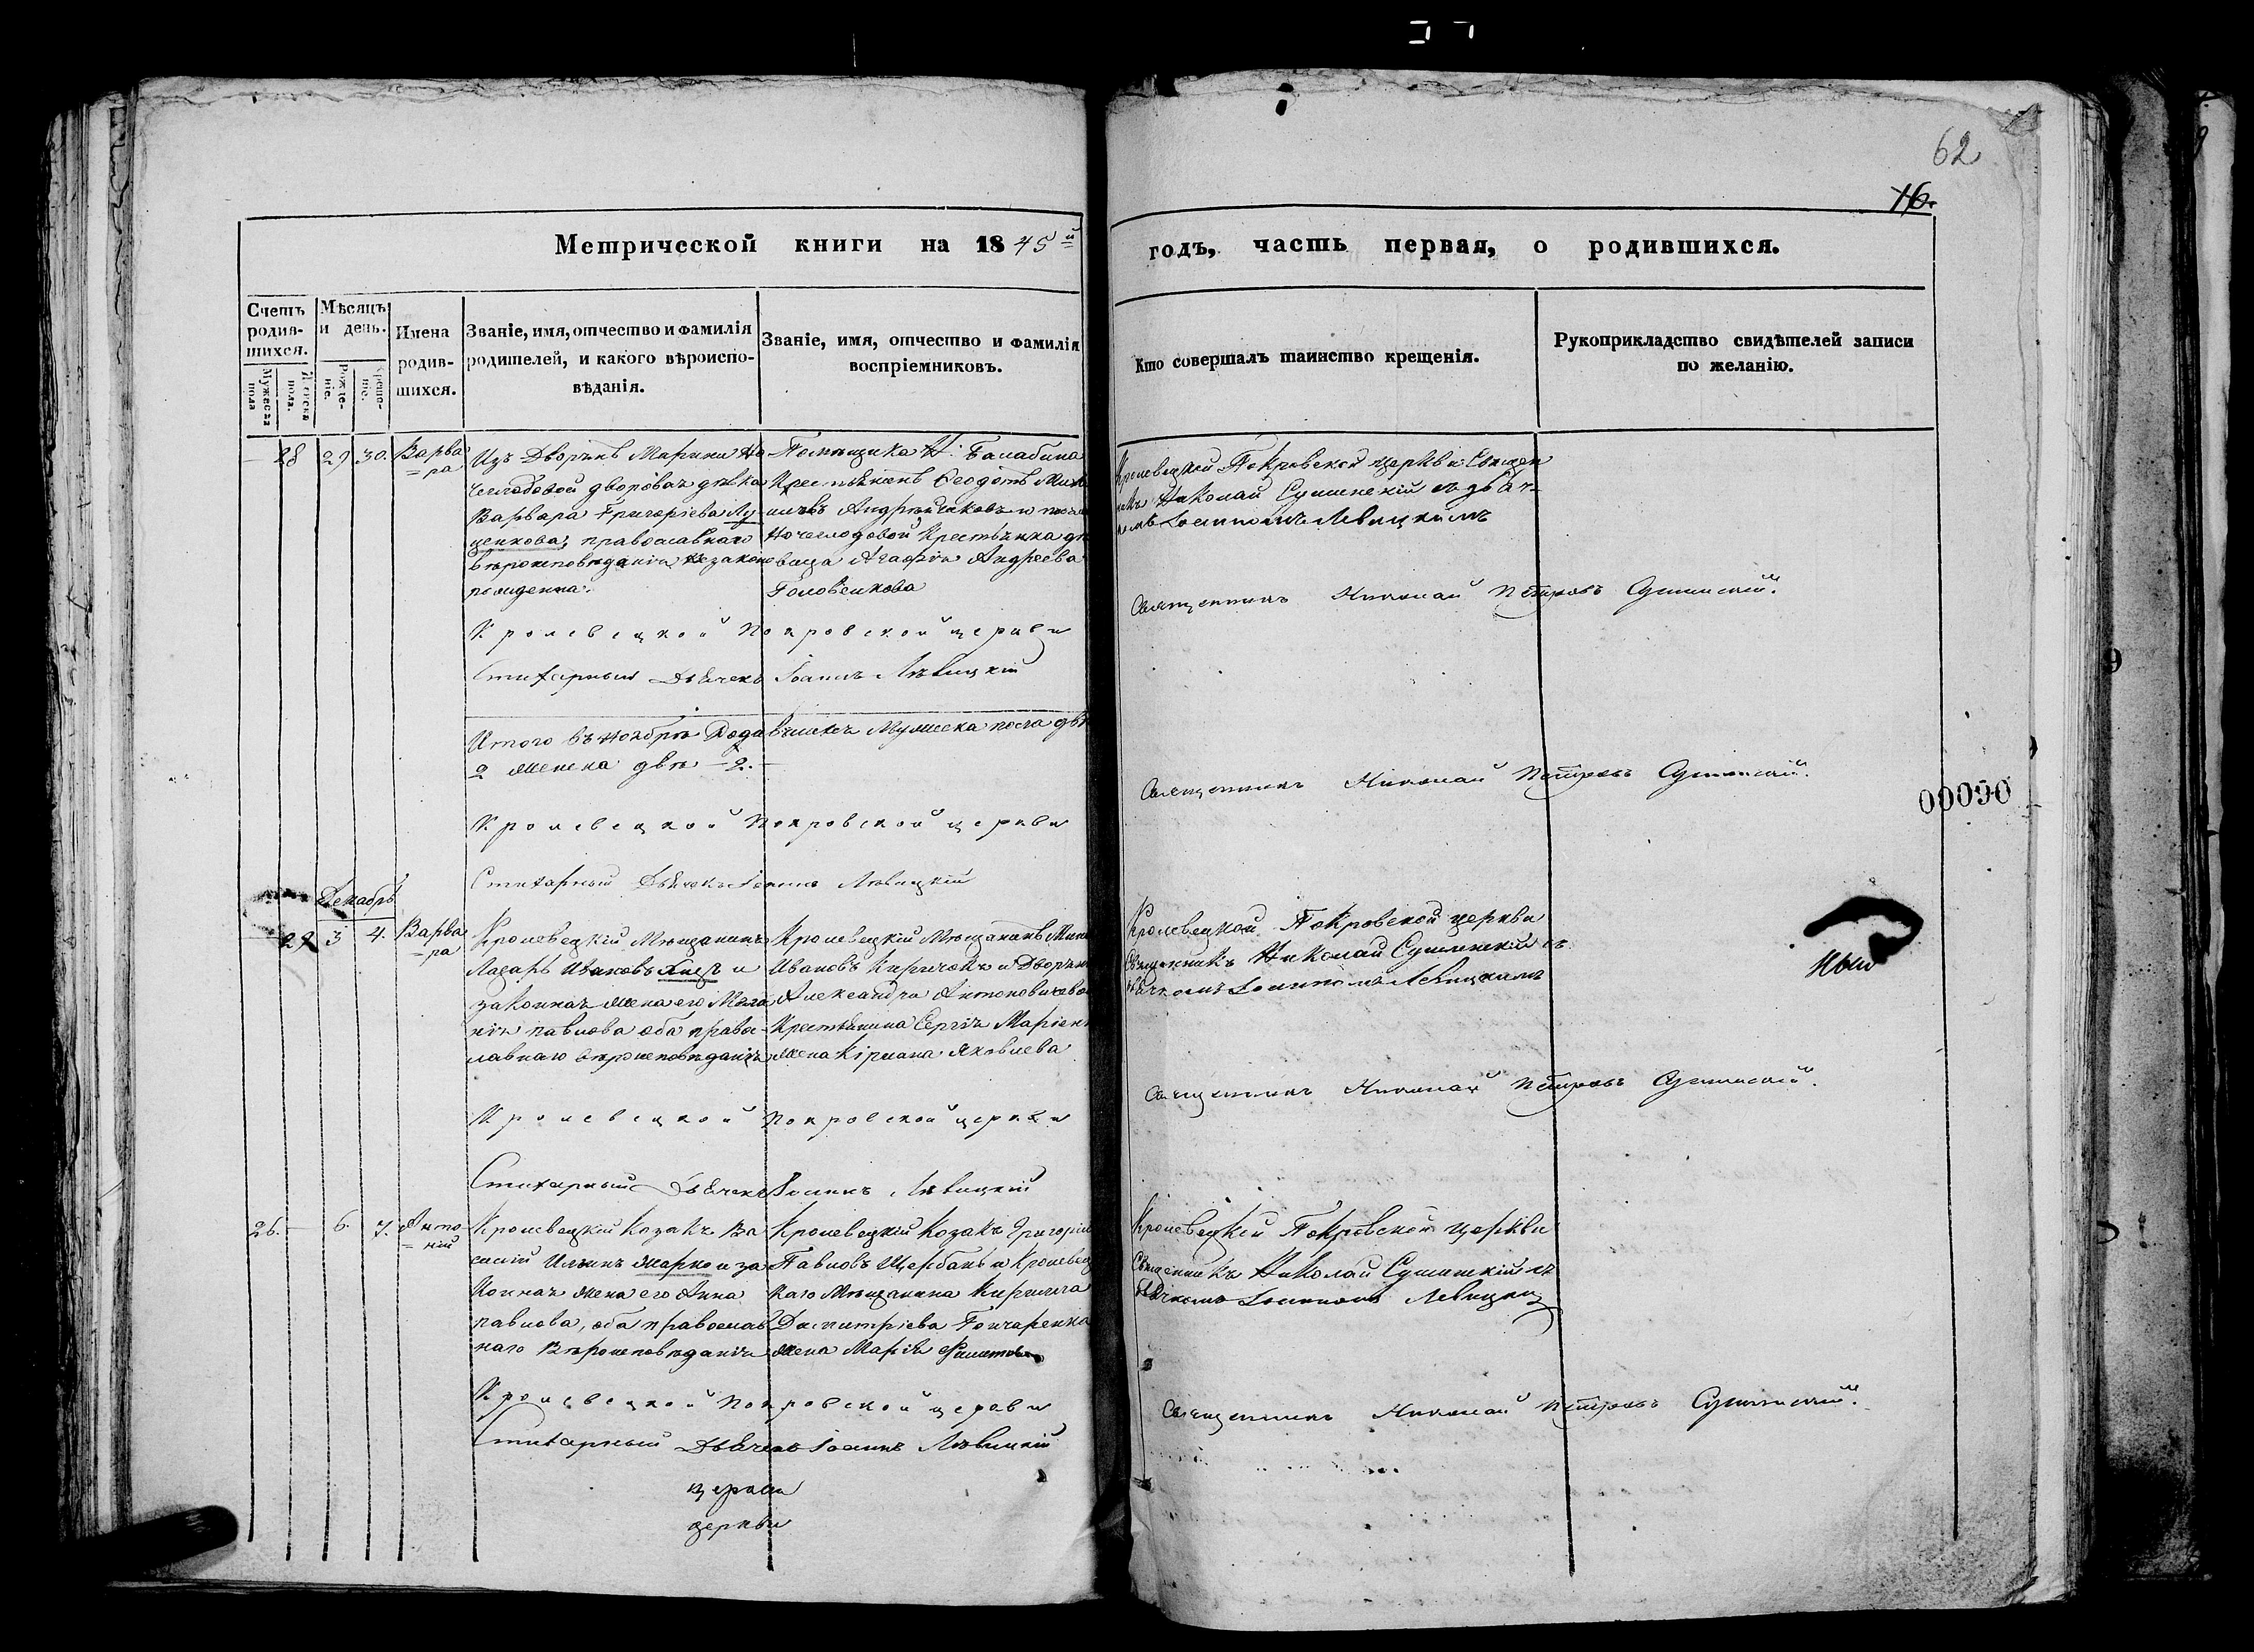 62
16.
Метрической книги на 1845й годъ, часть первая, о родившихся.
Счетъ родив-шихся.
Мужеска пола
Женска пола.
Мѣсяцъ и день.
Рожде-ніе.
Креще-ніе.
Имена родив-шихся.
Званіе, имя, отчество и фамилія
родителей, и какого вѣроиспо-
вѣданія.
Званіе, имя, отчество и фамилія
воспріемниковъ.
Кто совершалъ таинство крещенія.
Рукоприкладство свидѣтелей записи
по желанію.
28 29 30. Варва
=ра
Изъ Дворянъ Марини Но
челодовой дворовая дѣвка
Варвара Григоріева Лу-
ценкова, православнаго
вѣроисповѣданія незаконо
рожденна.
Помѣщика Н. Балабина
Крестьянинъ Ѳеодотъ
Андрейчиковъ и
Ночелодовой Крестьянка
вица Агафія Андреева
Головенкова
Кролевецкой Покровской церкви Священ
никъ Николай Сушинскій съ дьяч-
комъ Іоанномъ Левицкимъ
Священникъ Николай Петровъ Сушинскій.
Кролевецкой Покровской церкви
Стихарный Дьячекъ Іоаннъ Лѣвицкій
Итого въ Ноябрѣ Родившихся Мужеска пола два
2 женска двѣ – 2. –
Священникъ Николай Петровъ Сушинскій.
00090
Кролевецкой Покровской церкви
Стихарный Дьячекъ Іоаннъ Лѣвицкій
Декабрь
29 3 4. Варва
=ра
Кролевецкій Мѣщанинъ
Лазарь Ивановъ и
законная жена его Мела
нія павлова оба право-
славнаго вѣроисповѣданія
Кролевецкій Мѣщанинъ
Ивановъ Киричокъ и Дворян
Александра Антоновичева
Крестьянина Сергія
жена Киріана Яковлева
Кролевецкой Покровской церкви
Священникъ Николай Сушинскій съ
дьячкомъ Іоанномъ Левицкимъ
Священникъ Николай Петровъ Сушинскій.
Кролевецкой Покровской церкви
Стихарный Дьячекъ Іоаннъ Лѣвицкій
26. – 6. 7. Анто
=ній
Кролевецкій Козакъ Ва
силій Ильинъ Марко и за
конная жена его Анна
павлова, оба православ
наго Вѣроисповѣданія
Кролевецкій Козакъ Григорій
Павловъ Щербакъ и Кролевец
каго Мѣщанина Кирила
Дмитріева Гончаренка
жена Марія
Кролевецкой Покровской церкви
Священникъ Николай Сушинскій съ
дьячкомъ Іоанномъ Левицким
Священникъ Николай Петровъ Сушинскій.
Кролевецкой Покровской церкви
Стихарный Дьячекъ Іоаннъ Лѣвицкій
церкви
церкви